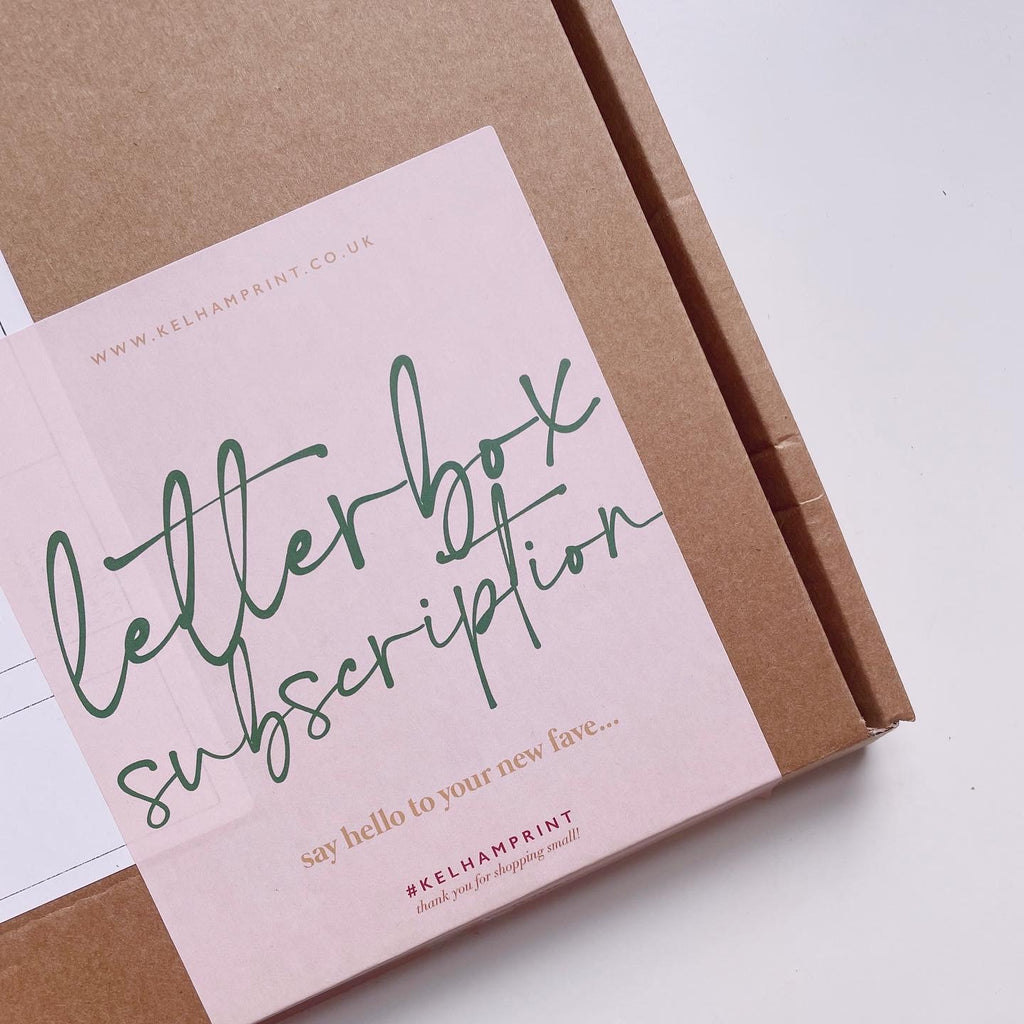 WWW.KELHAMPRINT.CO.UK
letterbox
subscription
say hello to your new fave...
#KELHAMPRINT
thank you for shopping small!